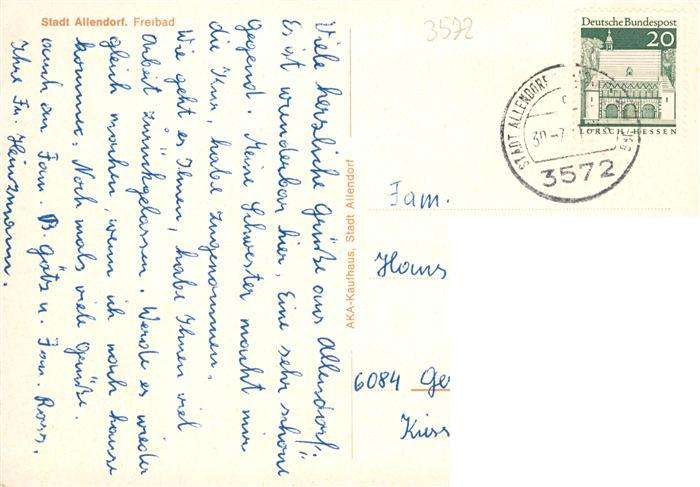 Stadt Allendorf. Freibad
Viele herzliche Grüße aus Allendorf.
Es ist wunderbar hier, Eine sehr schöne
Gegend. Meine Schwester macht mir
die Kur, habe zugenommen.
Wie geht es Ihnen, habe Ihnen viel
Arbeit zurückgelassen. Werde es wieder
gleich machen, wenn ich nach hause
komme. Noch mals viele Grüße.
auch an Fam. B. Götz u. Fam. Ross.
Ihre Fr. Heinzmann.
AKA-Kaufhaus, Stadt Allendorf
3572
Deutsche Bundespost
20
LORSCH/HESSEN
STADT ALLENDORF
30.-7.
3572
Fam.
Hans
6084 Ge
Kies